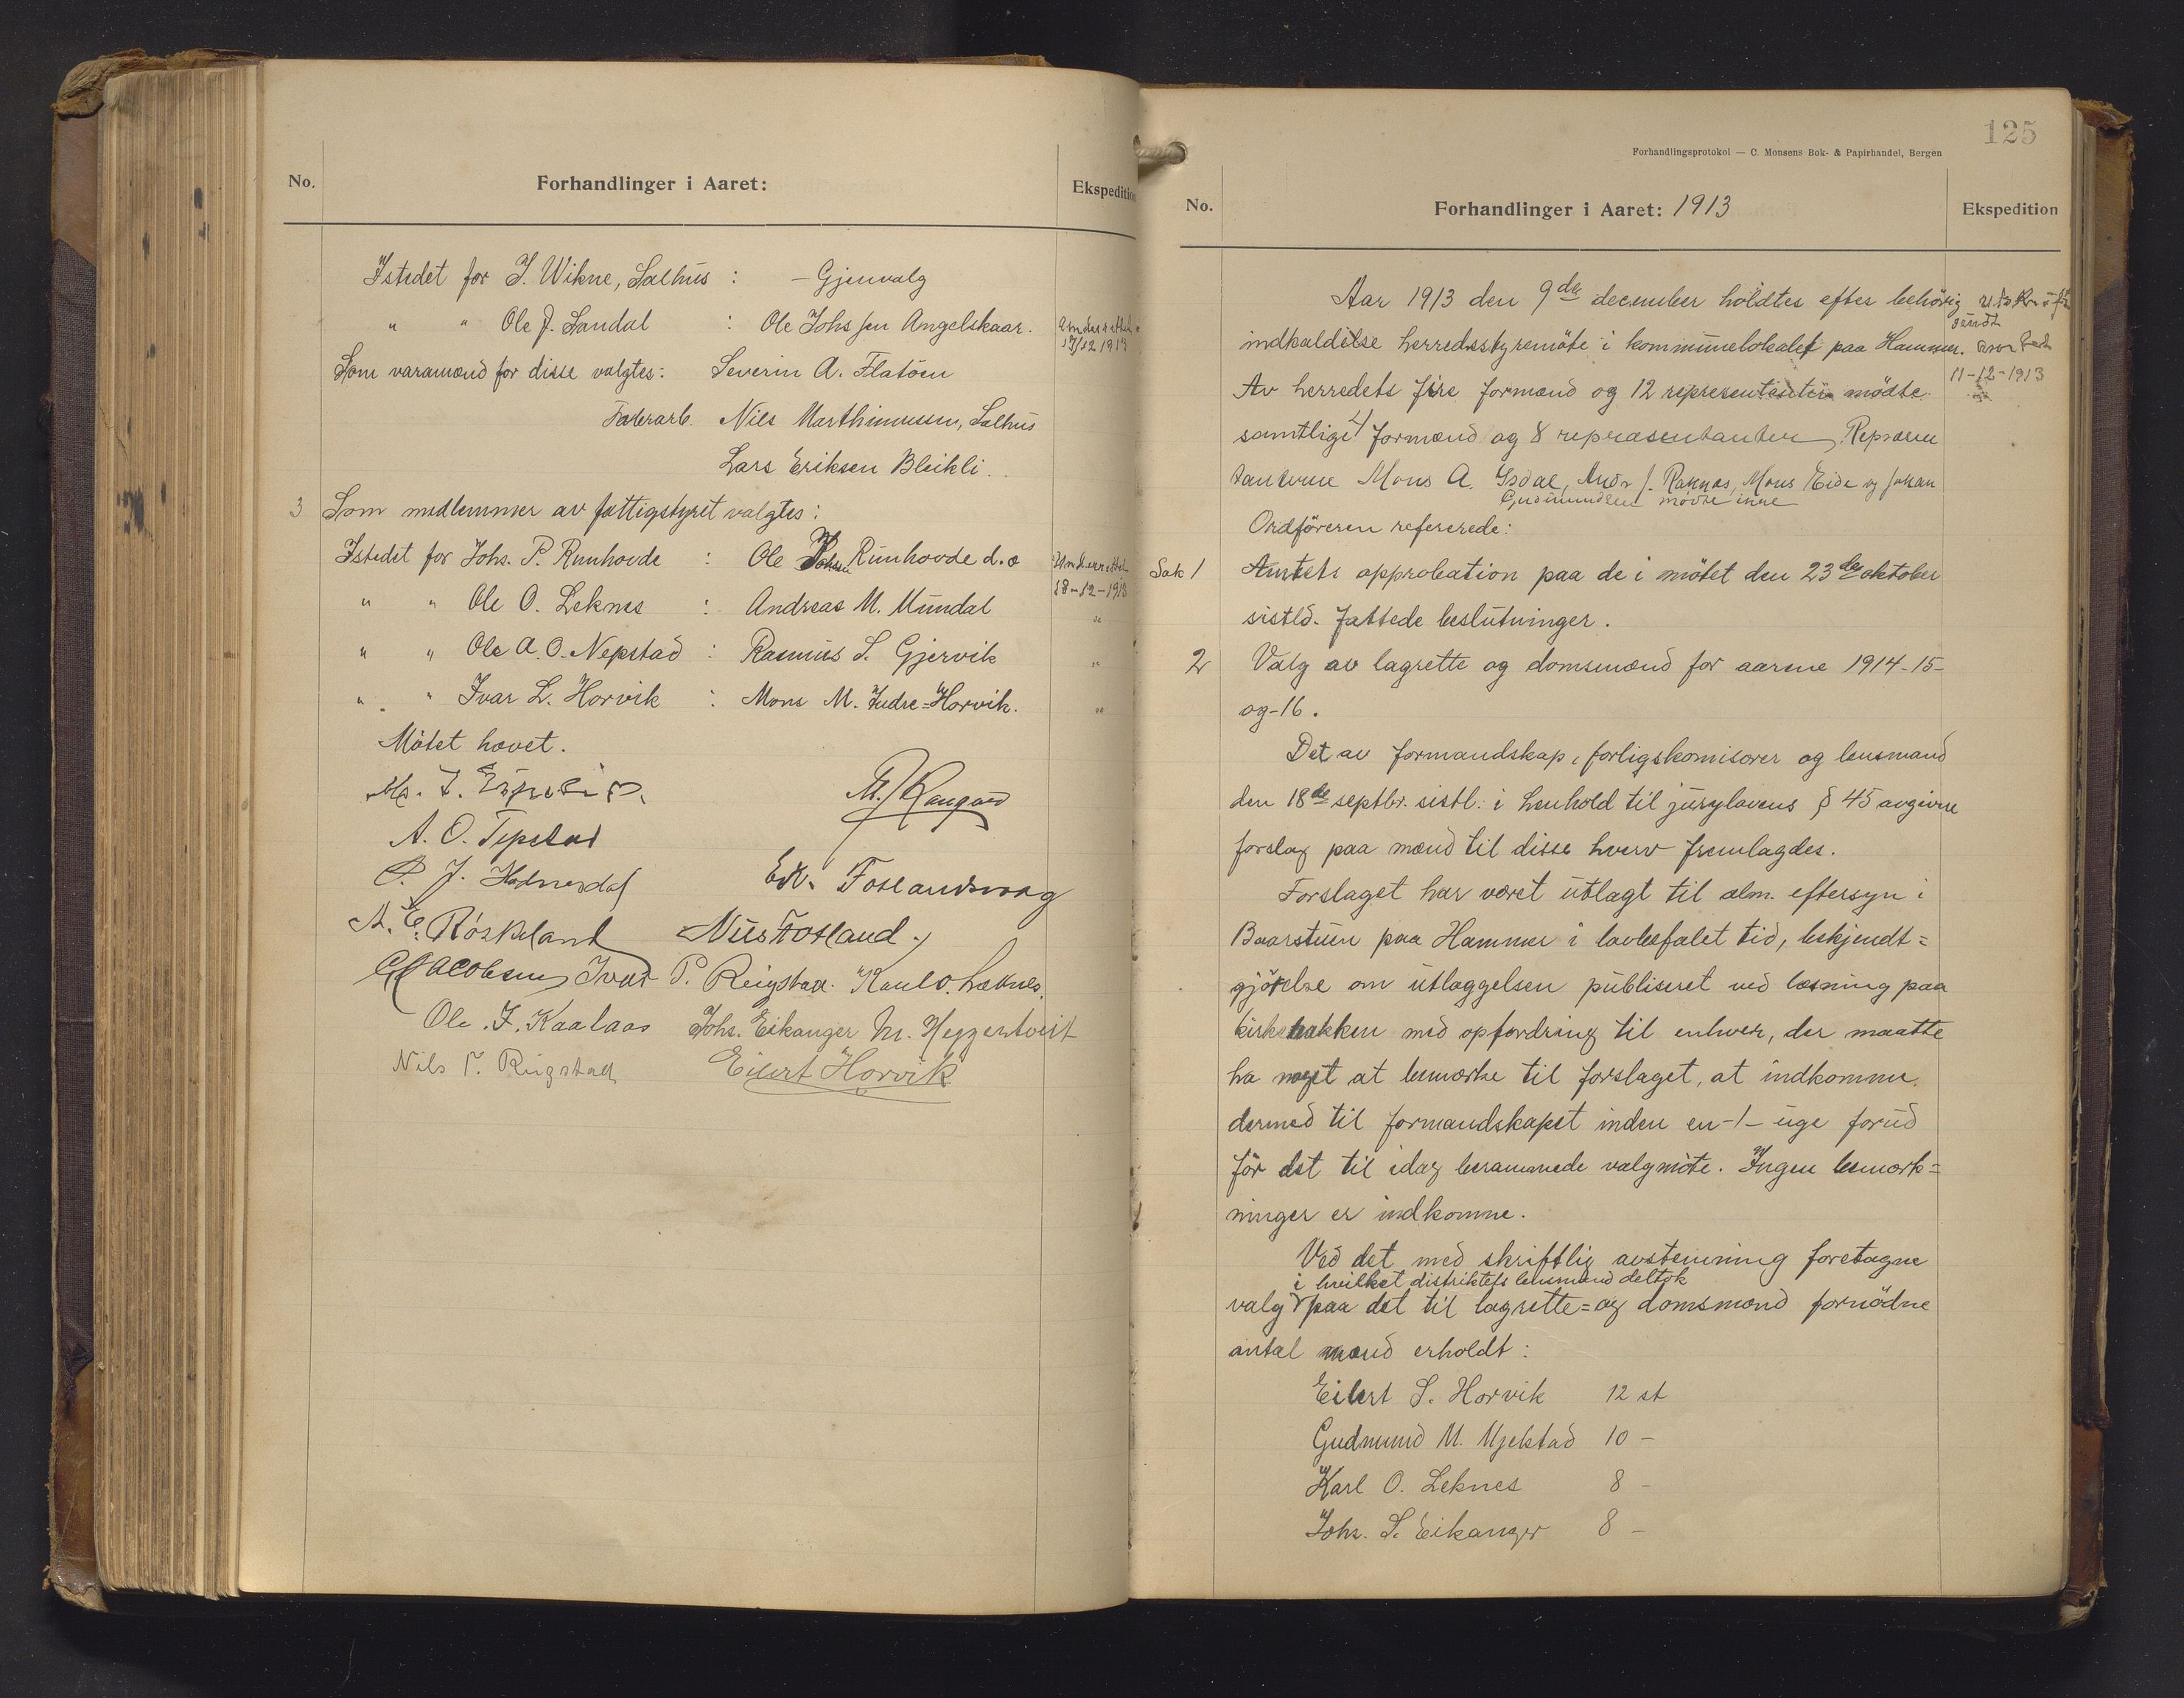 No.
Forhandlinger i Aaret:
Ekspedition
Istedet for J. Wikne, Salhus : — Gjenvalg
" " Ole J. Sandal : Ole Johs sen Angelskaar.
Underrettet
17/12 1913
Som varamænd for disse valgtes: Severin A. Flatöen
Faverarb. Nils Marthinussen, Salhus
Lars Eriksen Bleikli.
3 Som medlemmer av fattigstyret valgtes:
Istedet for Johs. P. Runhovde : Ole Johsen Runhovde d.æ
Underrettet
18-12-1913
" " Ole O. Leknes : Andreas M. Mundal "
" " Ole A. O. Nepstad : Rasmus S. Gjervik "
" " Ivar L. Horvik : Mons M. Indre=Horvik. "
Mötet hævet.
A. O. Tepstad
Edv. Fotlandsvaag
A. E. Röskeland Nils Fotland
Jacobsen Ivar P. Reigstad. Karl O. Leknes.
Ole. J. Kaalaas Johs. Eikanger M. Heggertveit
Nils T. Reigstad Eilert Horvik
125
Forhandlingsprotokol — C. Monsens Bok- & Papirhandel, Bergen
No.
Forhandlinger i Aaret: 1913
Ekspedition
Aar 1913 den 9de december holdtes efter behörig
indkaldelse herredsstyremöte i kommunelokalet paa Hammer.
Utskrift
sendt
11-12-1913
Av herredets fire formænd og 12 repræsentanter mödte
samtlige 4 formænd og 8 repræsentanter. Repræsen
tanterne Mons A. Isdal, Andr J. Raknes, Mons Eide og Johan
Gudmundsen mödte ikke
Ordföreren refererede:
Sak 1 Amtets approbation paa de i mötet den 23de oktober
sistld. fattede beslutninger.
2 Valg av lagrette og domsmænd for aarene 1914-15-
og-16.
Det av formandskap, forligskomisærer og lensmand
den 18de septbr. sistl. i henhold til jurylovens § 45 avgivne
forslag paa mænd til disse hverv fremlagdes.
Forslaget har været utlagt til alm. eftersyn i
Baarstuen paa Hammer i lovbefalet tid, bekjendt=
gjörelse om utlæggelsen publiseret ved læsning paa
kirkebakken med opfordring til enhver, der maatte
ha noget at bemærke til forslaget, at indkomme
dermed til formandskapet inden en -1- uge forud
för det til idag berammede valgmöte. Ingen bemærk=
ninger er indkomne.
Ved det med skriftlig avstemning foretagne
i hvilket distriktets lensmand deltok
valg paa det til lagrette= og domsmænd fornödne
antal mænd erholdt:
Eilert S. Horvik 12 st
Gudmund M. Mjelstad 10 —
Karl O. Leknes 8 —
Johs. S. Eikanger 8 —